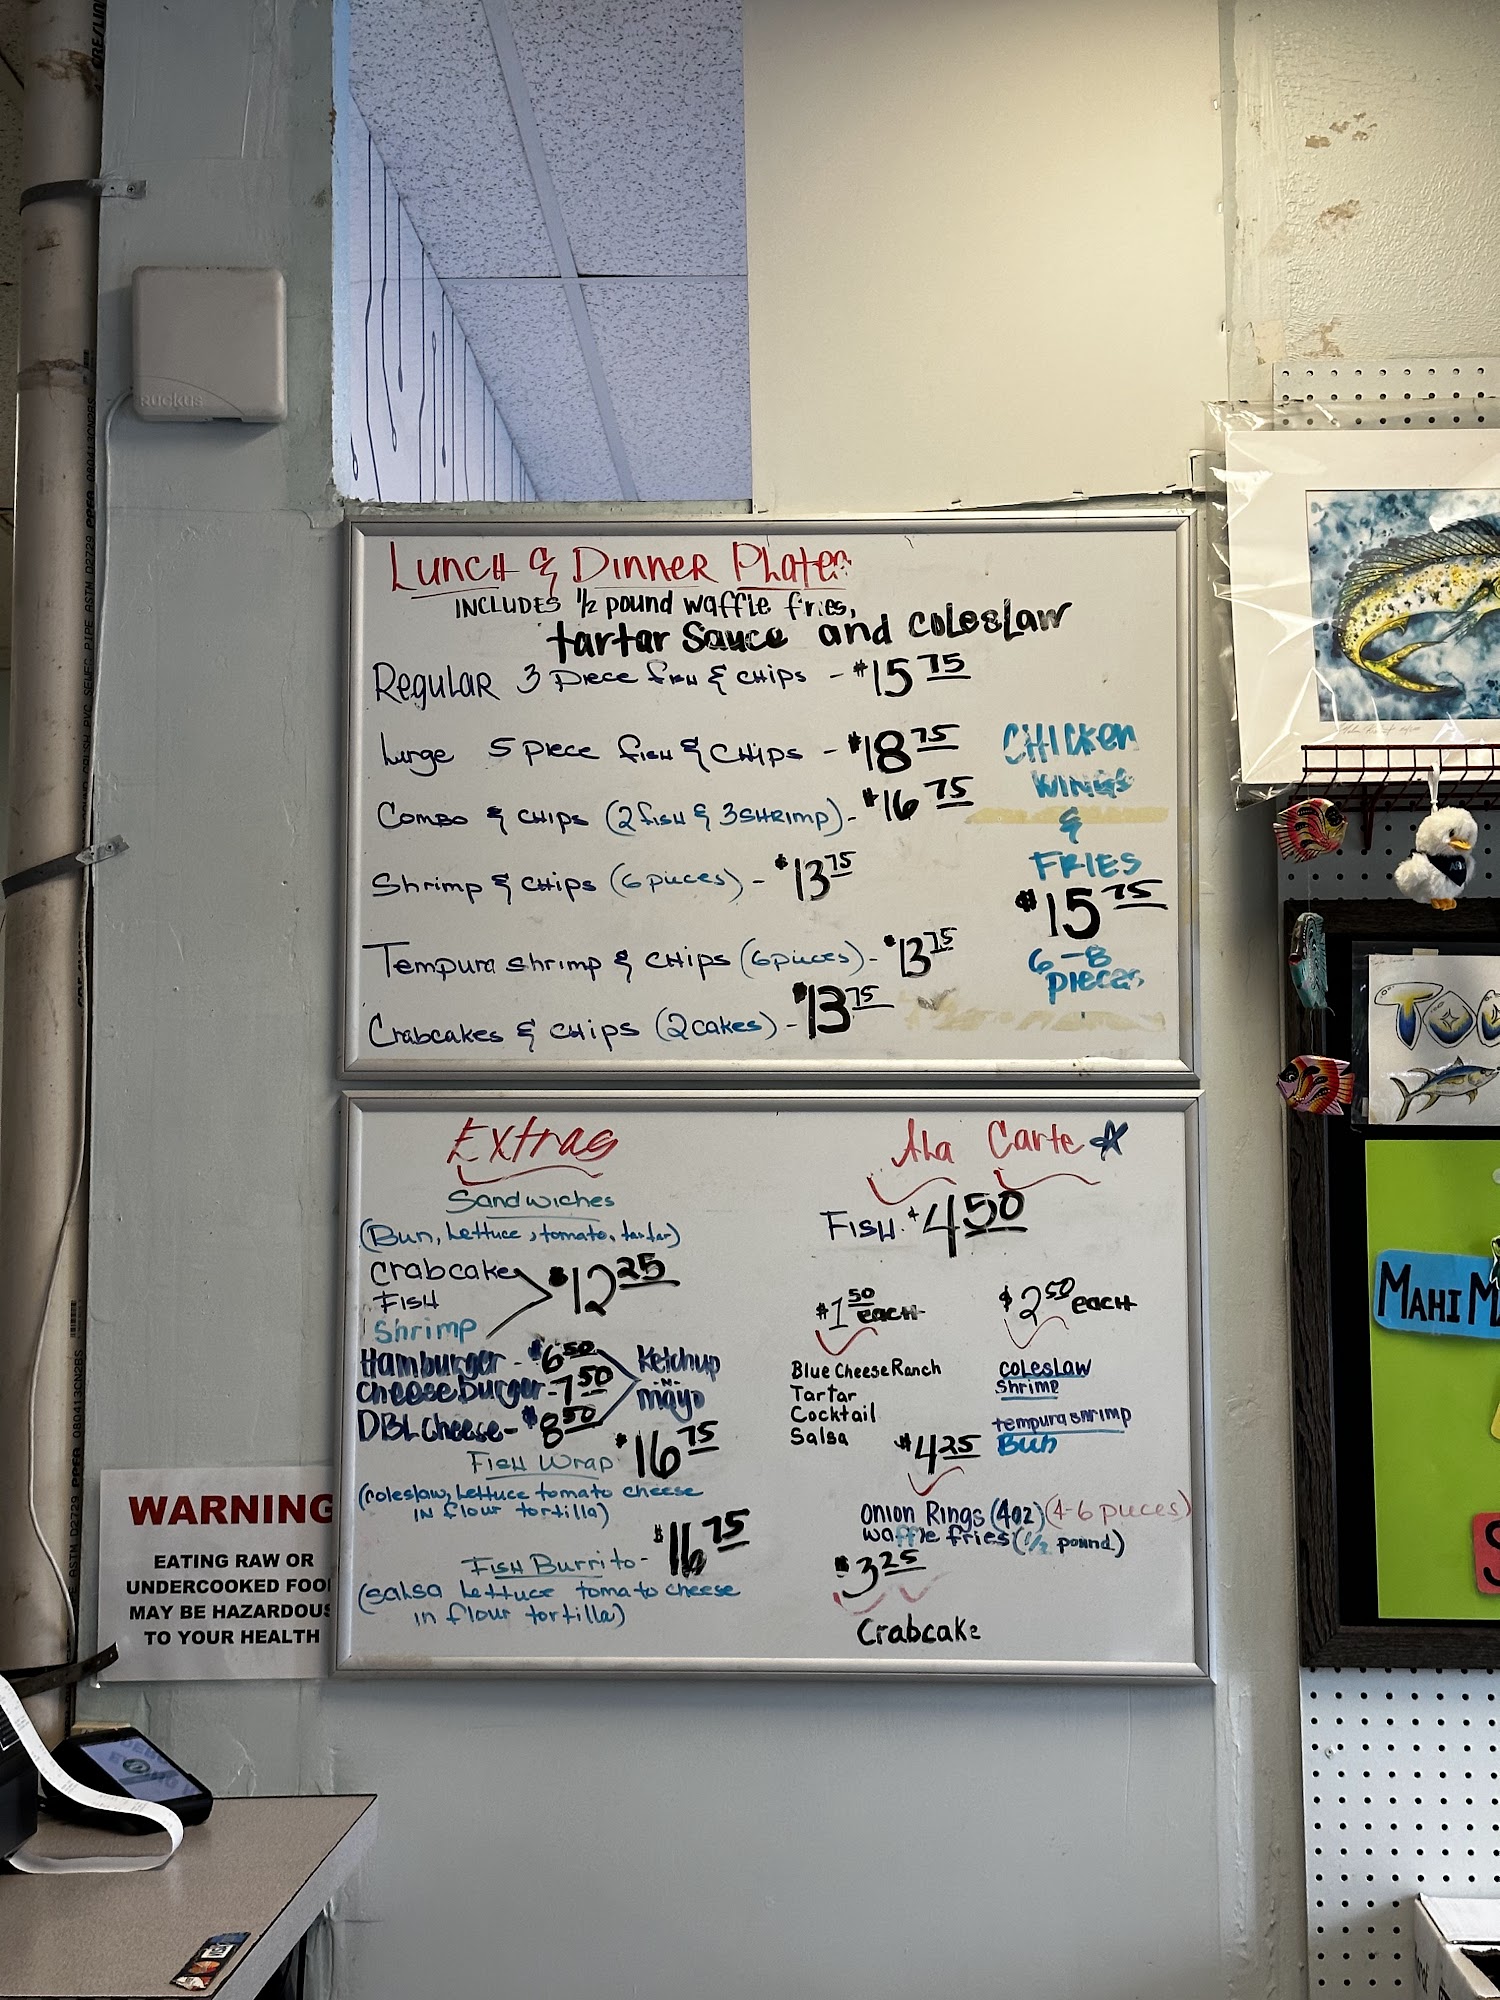 Ruckus
LUNCH & DINNER Plates
INCLUDES 1/2 pound waffle fries,
tartar Sauce and coleslaw
Regular 3 Piece fish & chips - $15 75
Large 5 piece fish & chips - $18 75
Combo & chips (2 fish & 3 SHRIMP) - $16 75
Shrimp & chips (6 pieces) - $13 75
Tempura shrimp & chips (6 pieces) - $13 75
Crabcakes & chips (2 cakes) - $13 75
CHICKEN
WINGS
&
FRIES
$15 75
6-8
pieces
Extras
Sandwiches
(Bun, Lettuce, tomato, tartar)
Crabcake
FISH
Shrimp
$12 25
Hamburger - $6 50
Cheeseburger - 7 50
DBL Cheese - $8 50
Ketchup
-N-
mayo
Fish Wrap $16 75
(coleslaw, Lettuce tomato cheese
IN flour tortilla)
Fish Burrito - $16 75
(salsa Lettuce tomato cheese
in flour tortilla)
Ala Carte
FISH. $4 50
$1 50 each
Blue Cheese Ranch
Tartar
Cocktail
Salsa
$2 50 each
coleslaw
shrimp
tempura shrimp
Bun
$4 25
Onion Rings (4oz) (4-6 pieces)
waffle fries (1/2 pound)
$3 25
Crabcake
WARNING
EATING RAW OR
UNDERCOOKED FOO
MAY BE HAZARDOUS
TO YOUR HEALTH
TOO
MAHI M
S
VISA